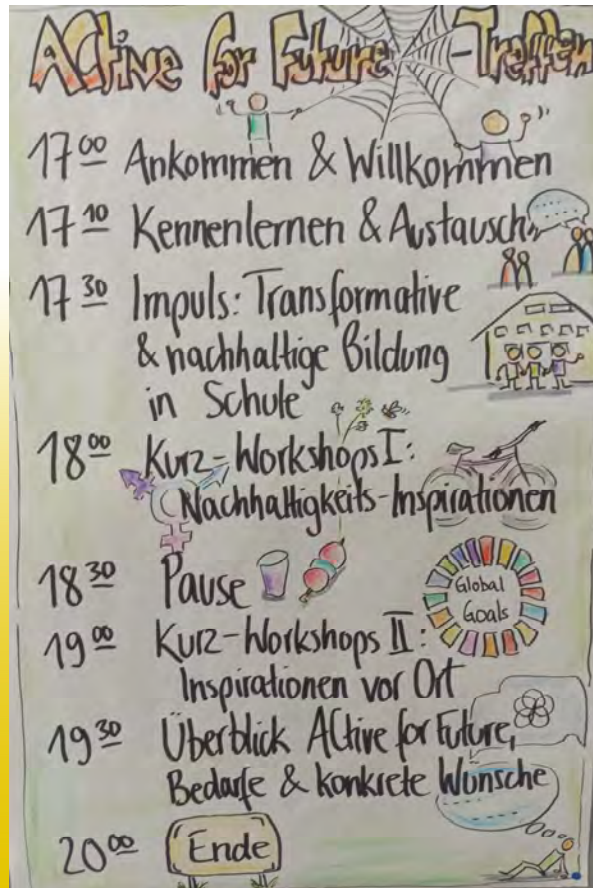 ACtive for Future -Treffen
17 00 Ankommen & Willkommen
17 10 Kennenlernen & Austausch
17 30 Impuls: Transformative
& nachhaltige Bildung
in Schule
18 00 Kurz-Workshops I:
Nachhaltigkeits-Inspirationen
18 30 Pause
Global
Goals
19 00 Kurz-Workshops II:
Inspirationen vor Ort
19 30 Überblick ACtive for Future,
Bedarfe & konkrete Wünsche
20 00 Ende